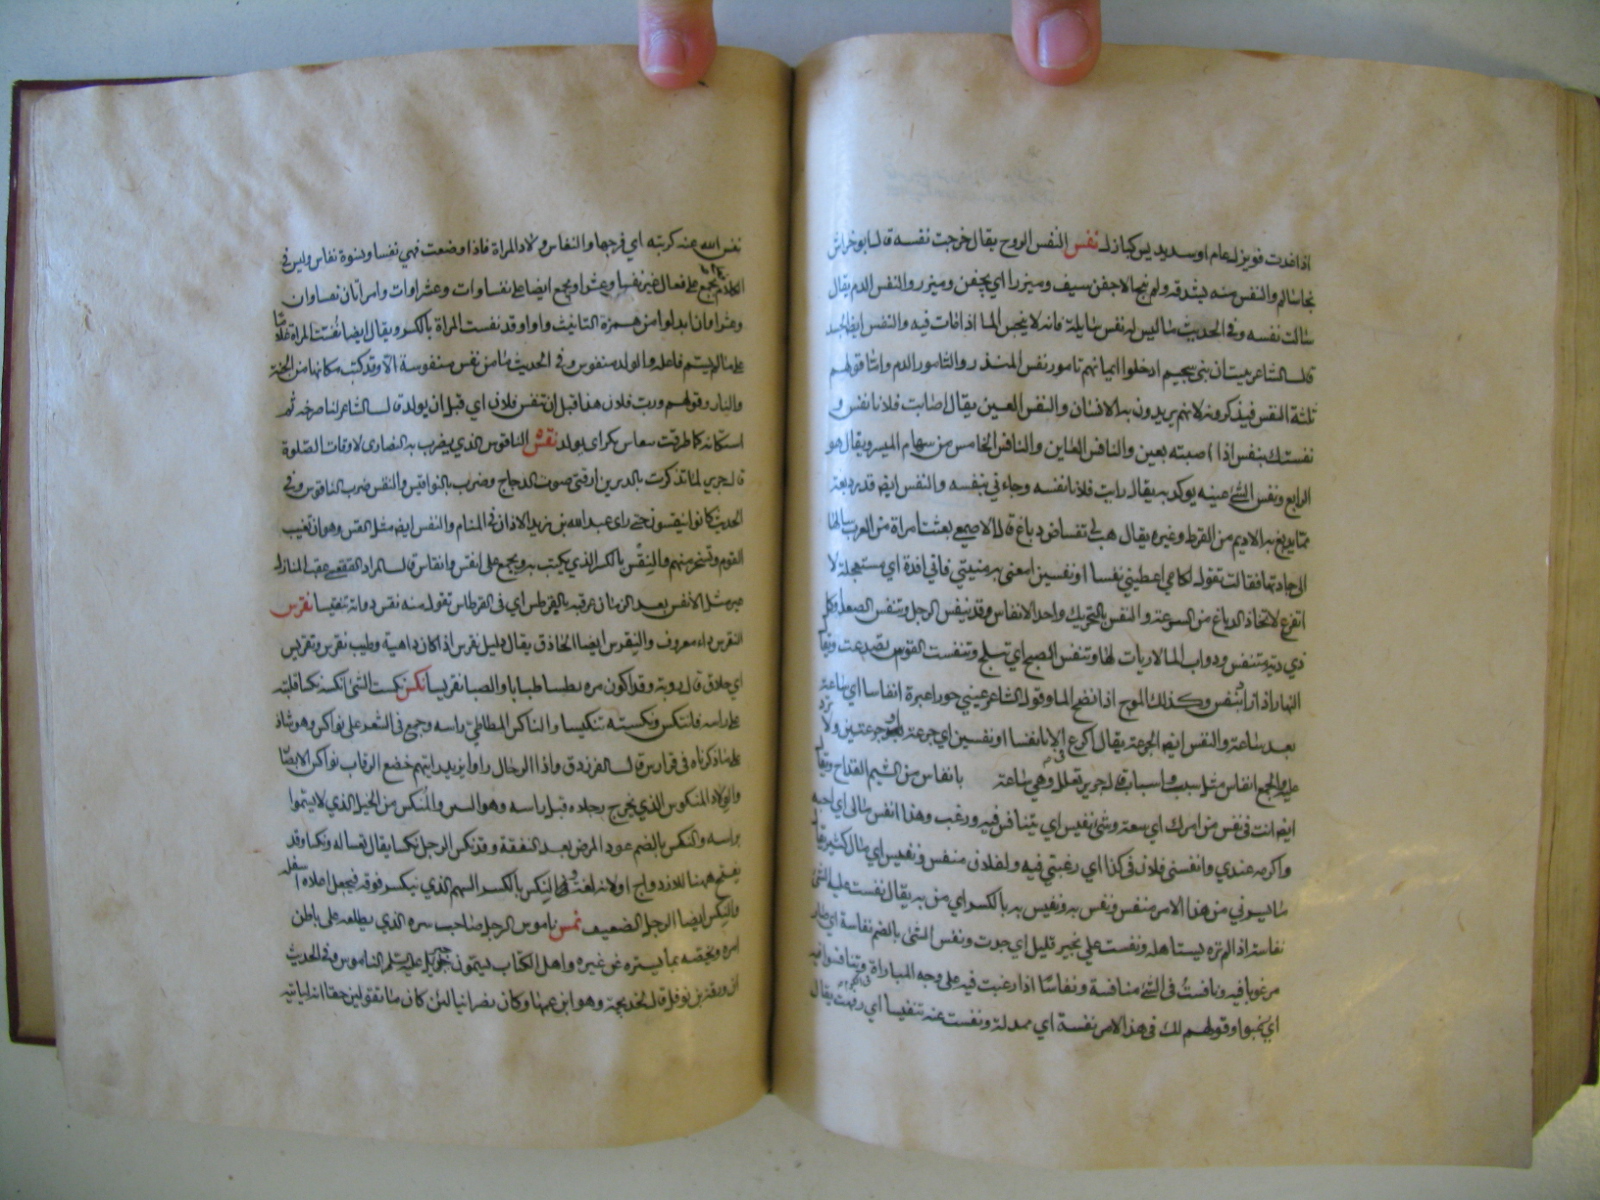 اذا غدت فويزله عام او سديديس كباز له نفس النفس الروح يقال خرجت نفسه قال ابو خراش
نجا سالم والنفس منه بشدقه ولم ينج الا جفن سيف وميزرا اي بجفن وميزر والنفس الدم يقال
سالت نفسه وفي الحديث ما ليس له نفس سايلة فانه لا ينجس الما اذا مات فيه والنفس ايضا الجسد
قال الشاعر نبيت ان بنى سحيم ادخلوا ابياتهم تامور نفس المنذر والتامور الدم واما قولهم
ثلثة انفس فيذكرونه لانهم يريدون به الانسان والنفس العين يقال اصابت فلانا نفس و
نفستك بنفس اذا اصبته بعين والنافس العاين والنافس الخامس من سهام الميسر ويقال هو
الرابع ونفس الشئ عينه يوكد به يقال رايت فلانا نفسه وجاءني بنفسه والنفس ايضا قدر دبغة
مما يدبغ به الاديم من القرظ وغيره يقال هب لي نفسا من دباغ قال الاصمعي بعثت امراة من العرب بنتا لها
الى جارتها فقالت تقول لك امي اعطيني نفسا او نفسين امعس به منيئتي فاني افدة اي مستعجلة لا
اتفرغ لاتخاذ الدباغ من السرعة والنفس بالتحريك واحد الانفاس وقد تنفس الرجل وتنفس الصعدا وكل
ذي رية متنفس ودواب الما لا ريات لها وتنفس الصبح اي تبلج وتنفست القوس تصدعت ويقال
النهار اذا زاد تنفس وكذلك الموج اذا نضح الما وقول الشاعر عيني جودا عبرة انفاسا اي ساعة
بعد ساعة والنفس ايضا الجرعة يقال اكرع في الانا نفسا او نفسين اي جرعة او جرعتين ولا تزد
عليه والجمع انفاس مثل سبب واسباب قال جرير تعلل وهي ساغبة بانفاس من الشبم القراح ويقال
ايضا انت في نفس من امرك اي سعة وشئ نفيس اي يتنافس فيه ويرغب وهذا انفس مالي اي احبه
واكرمه عندي وانفسني فلان في كذا اي رغبني فيه ولفلان منفس ونفيس اي مال كثير يقال
ما يسرني من هذا الامر منفس ونفس به ونفيس به بالكسر اي ضن به يقال نفست عليه الشئ
نفاسة اذا لم تره يستاهله ونفست علي بخير قليل اي حسدت ونفس الشئ بالضم نفاسة اي صار
مرغوبا فيه ونافست في الشئ منافسة ونفاسا اذا رغبت فيه على وجه المباراة وتنافسوا فيه
اي رغبوا وقولهم لك في هذا الامر نفسة اي مهلة ونفست عنه تنفيسا اي رفهت يقال
نفس الله عنه كربته اي فرجها والنفاس ولاد المراة فاذا وضعت فهي نفسا ونسوة نفاس وليس في
الكلام فعلا يجمع على فعال غير نفسا وعشرا ويجمع ايضا على نفساوات وعشراوات وامراتان نفساوان
وعشراوان ابدلوا من همزة التانيث واوا وقد نفست المراة بالكسر ويقال ايضا نفست المراة غلاما
على ما لم يسم فاعله والولد منفوس وفي الحديث ما من نفس منفوسة الا وقد كتب مكانها من الجنة
والنار وقولهم ورث فلان هذا قبل ان تنفس فلان اي قبل ان يولد قال الشاعر لنا صرخة ثم
اسكاتة كما طرقت بنفاس بكر اي بولد نقس الناقوس الذي يضرب به النصارى لاوقات الصلوة
قال جرير لما تذكرت بالديرين ارقني صوت الدجاج وضرب بالنواقيس والنقس ضرب الناقوس وفي
الحديث كادوا ينقسون حتى راى عبد الله بن زيد الاذان في المنام والنقس ايضا مثل اللقس وهو ان تعيب
القوم وتسخر منهم والنقس بالكسر الذي يكتب به ويجمع على انقس وانقاس قال المرار الفقعسي عفت المنازل
غير مثل الانقس بعد الزمان عرفته بالقرطس اي في القرطاس تقول منه نقس دواته تنقيسا نقرس
النقرس داء معروف والنقرس ايضا الحاذق يقال دليل نقرس اذا كان داهية وطبيب نقرس ونقريس
اي حاذق قال روبة وقد اكون مرة نطيسا طبا بادواء الصبا نقريسا نكس نكست الشئ انكسه نكسا قلبته
على راسه فانتكس ونكسته تنكيسا والناكس المطاطئ راسه وجمع في الشعر على نواكس وهو شاذ
على ما ذكرناه في فوارس قال الفرزدق واذا الرجال راوا يزيد رايتهم خضع الرقاب نواكس الابصار
والولاد المنكوس الذي يخرج رجلاه قبل راسه وهو اليتن والمنكس من الخيل الذي لا يسموا
براسه والنكس بالضم عود المرض بعد النقهة وقد نكس الرجل نكسا يقال تعسا له ونكسا وقد
يفتح ههنا للازدواج او لانه لغة والنكس بالكسر السهم الذي ينكسر فوقه فيجعل اعلاه اسفله
والنكس ايضا الرجل الضعيف نمس ناموس الرجل صاحب سره الذي يطلعه على باطن
امره ويخصه بما يستره عن غيره واهل الكتاب يسمون جبريل عليه السلم الناموس وفي الحديث
ان ورقة بن نوفل قال لخديجة وهو ابن عمها وكان نصرانيا لئن كان ما تقولين حقا انه لياتيه